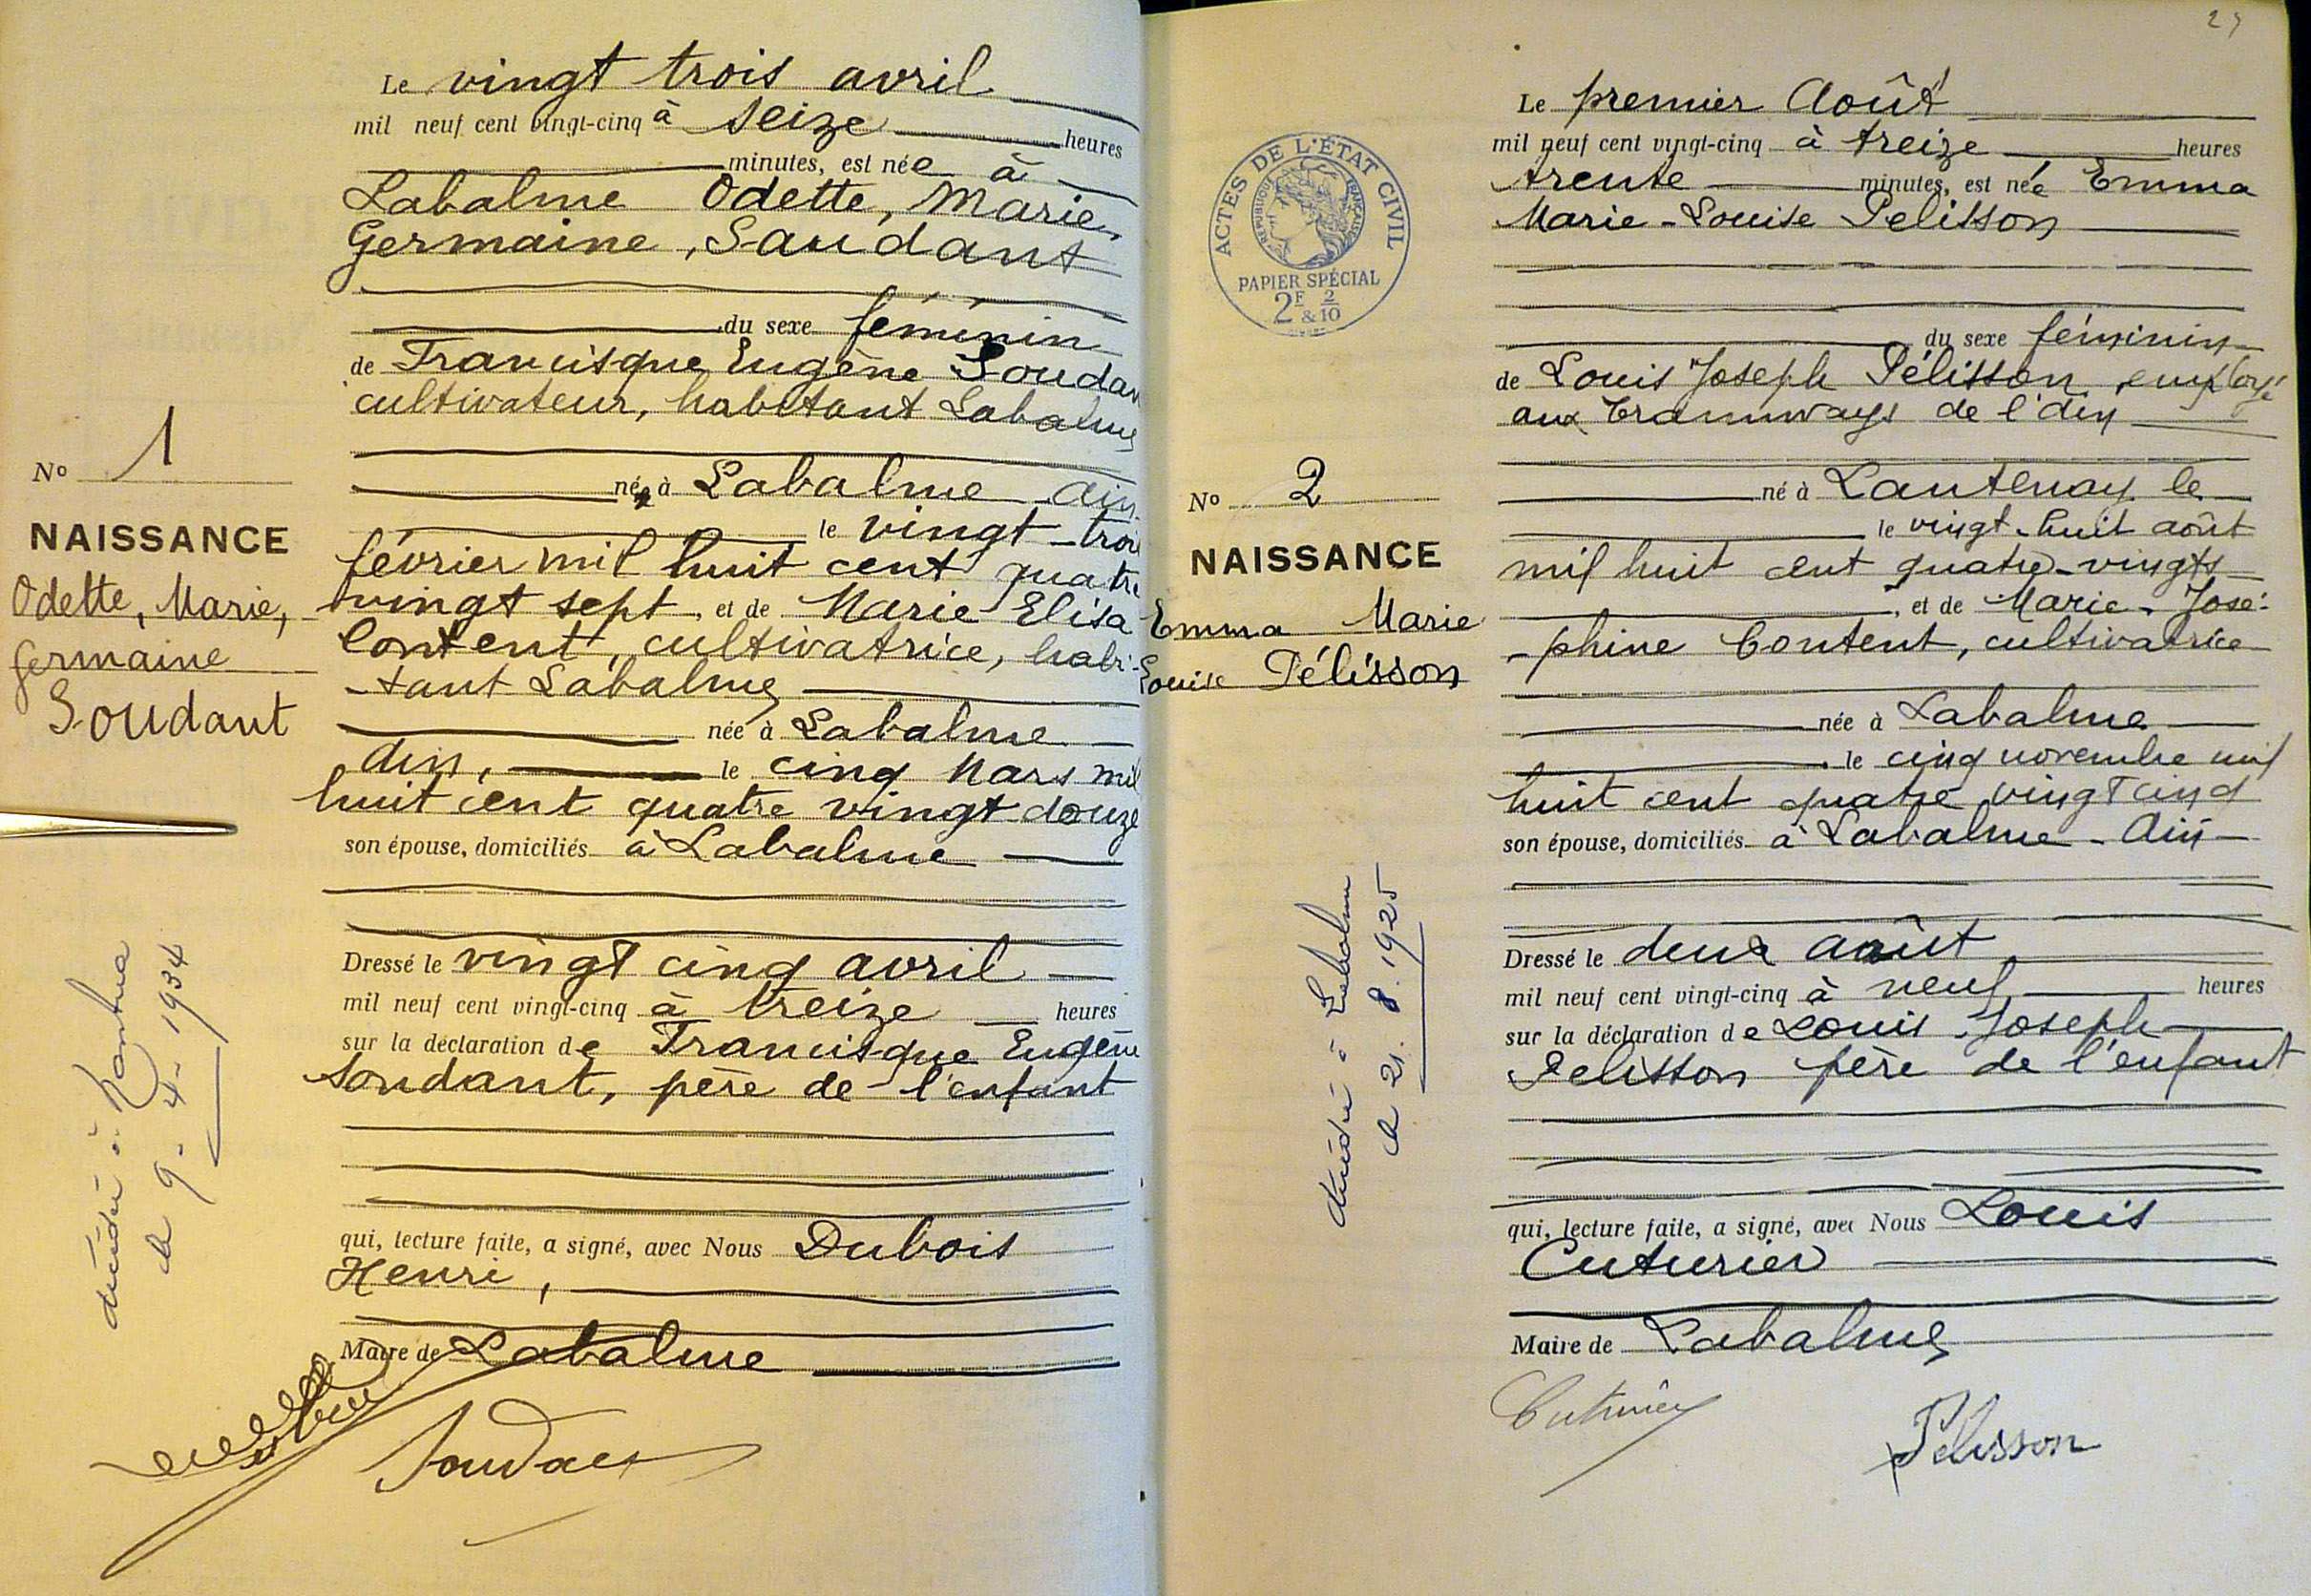 Le vingt trois avril
mil neuf cent vingt-cinq à seize heures
minutes, est née à
Labalme Odette, Marie,
Germaine, Saudant
du sexe féminin
de Francisque Eugène Soudan
cultivateur, habitant Labalme
née à Labalme Ain
le vingt-trois
février mil huit cent quatre
vingt sept, et de Marie Elisa
Content, cultivatrice, habi-
-tant Labalme
née à Labalme
Ain, le cinq Mars mil
huit cent quatre vingt douze
son épouse, domiciliés à Labalme
Dressé le vingt cinq avril
mil neuf cent vingt-cinq à treize heures
sur la déclaration de Francisque Eugène
Soudant, père de l'enfant
qui, lecture faite, a signé, avec Nous Dubois
Henri,
Maire de Labalme
No 1
NAISSANCE
Odette, Marie,
Germaine
Soudant
décédée à Nantua
le 9-4-1934
29
Le premier Août
mil neuf cent vingt-cinq à treize heures
trente minutes, est née Emma
Marie-Louise Pelisson
du sexe féminin
de Louis Joseph Pélisson, employé
aux tramways de l'Ain
né à Lantenay le
le vingt-huit août
mil huit cent quatre-vingts
, et de Marie-José-
-phine Content, cultivatrice
née à Labalme
le cinq novembre mil
huit cent quatre vingt cinq
son épouse, domiciliés à Labalme-Ain
Dressé le deux août
mil neuf cent vingt-cinq à neuf heures
sur la déclaration de Louis Joseph
Pelisson père de l'enfant
qui, lecture faite, a signé, avec Nous Louis
Cuturier
Maire de Labalme
Cuturier
Pelisson
ACTES DE L'ÉTAT CIVIL
RÉPUBLIQUE FRANÇAISE
PAPIER SPÉCIAL
2F 2
& 10
No 2
NAISSANCE
Emma Marie
Louise Pélisson
décédée à Labalme
le 21.8.1925